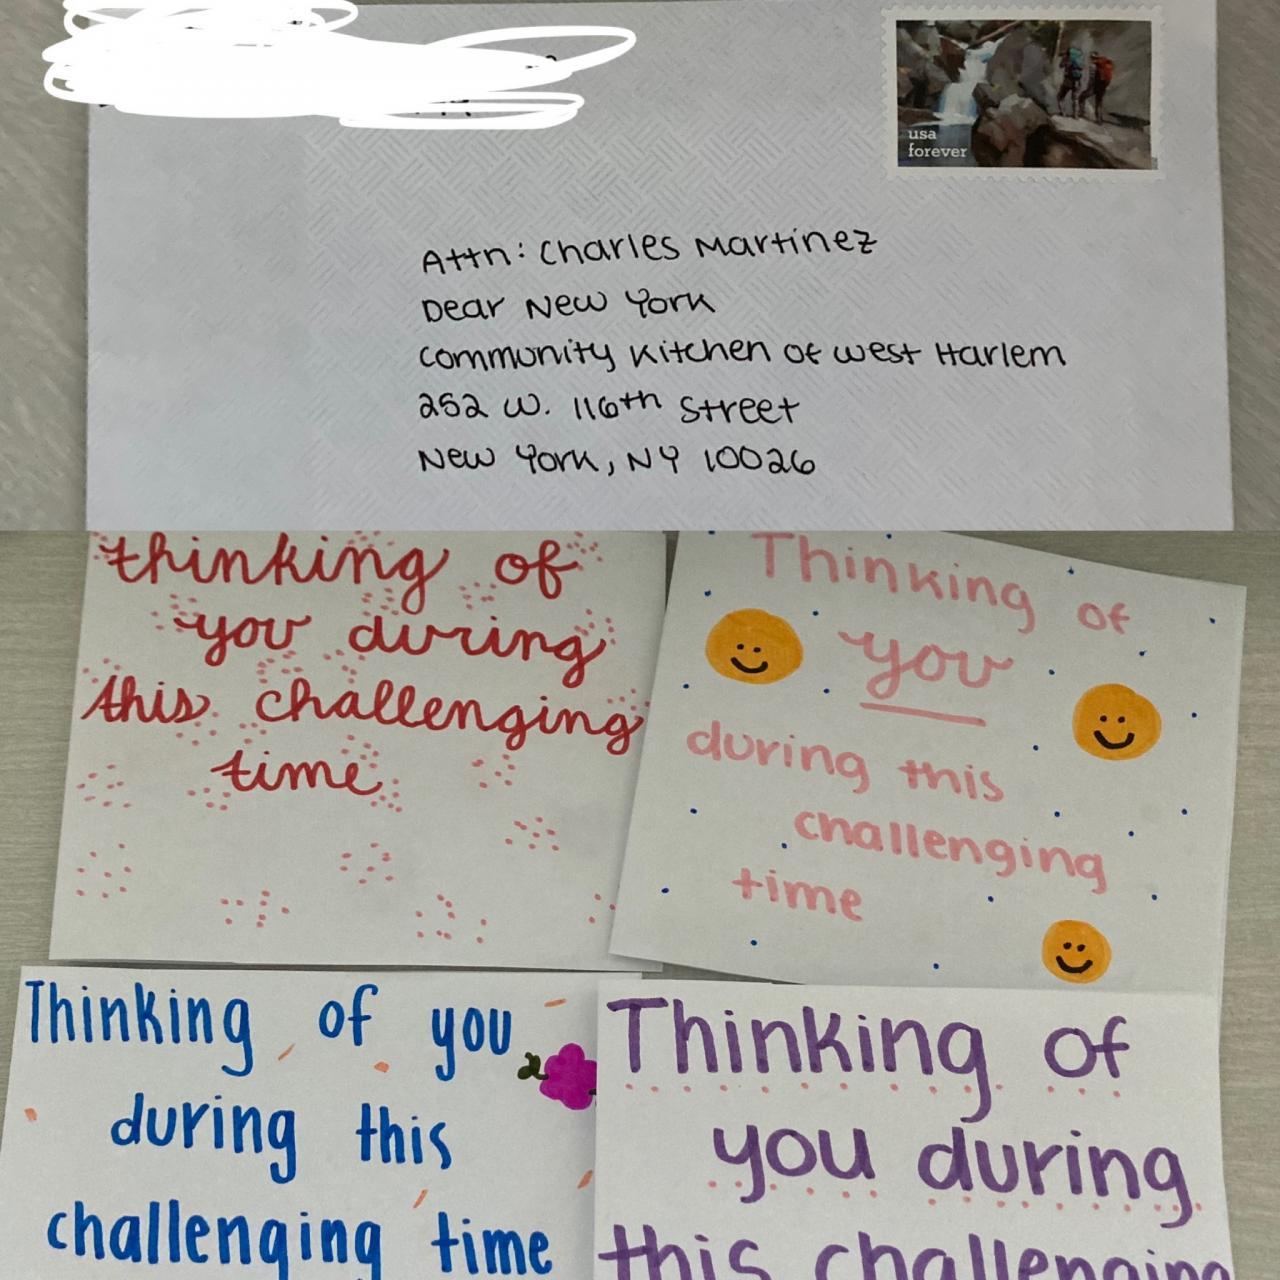 usa
forever
Attn: Charles Martinez
Dear New York
Community Kitchen of West Harlem
252 W. 116th Street
New York, NY 10026
thinking of
you during
this challenging
time
Thinking of
you
during this
challenging
time
Thinking of you
during this
challenging time
Thinking of
you during
this challenging